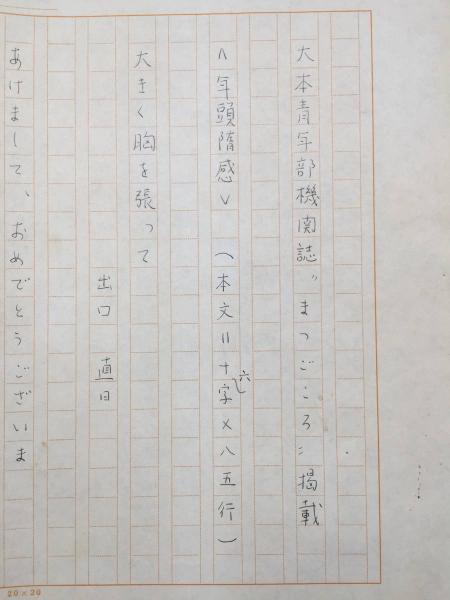 大本青年部機関誌〝まつごころ〟掲載
〈年頭隋感〉 (本文=十六字×八五行)
大きく胸を張って
出口 直日
あけまして、おめでとうございま
20×20